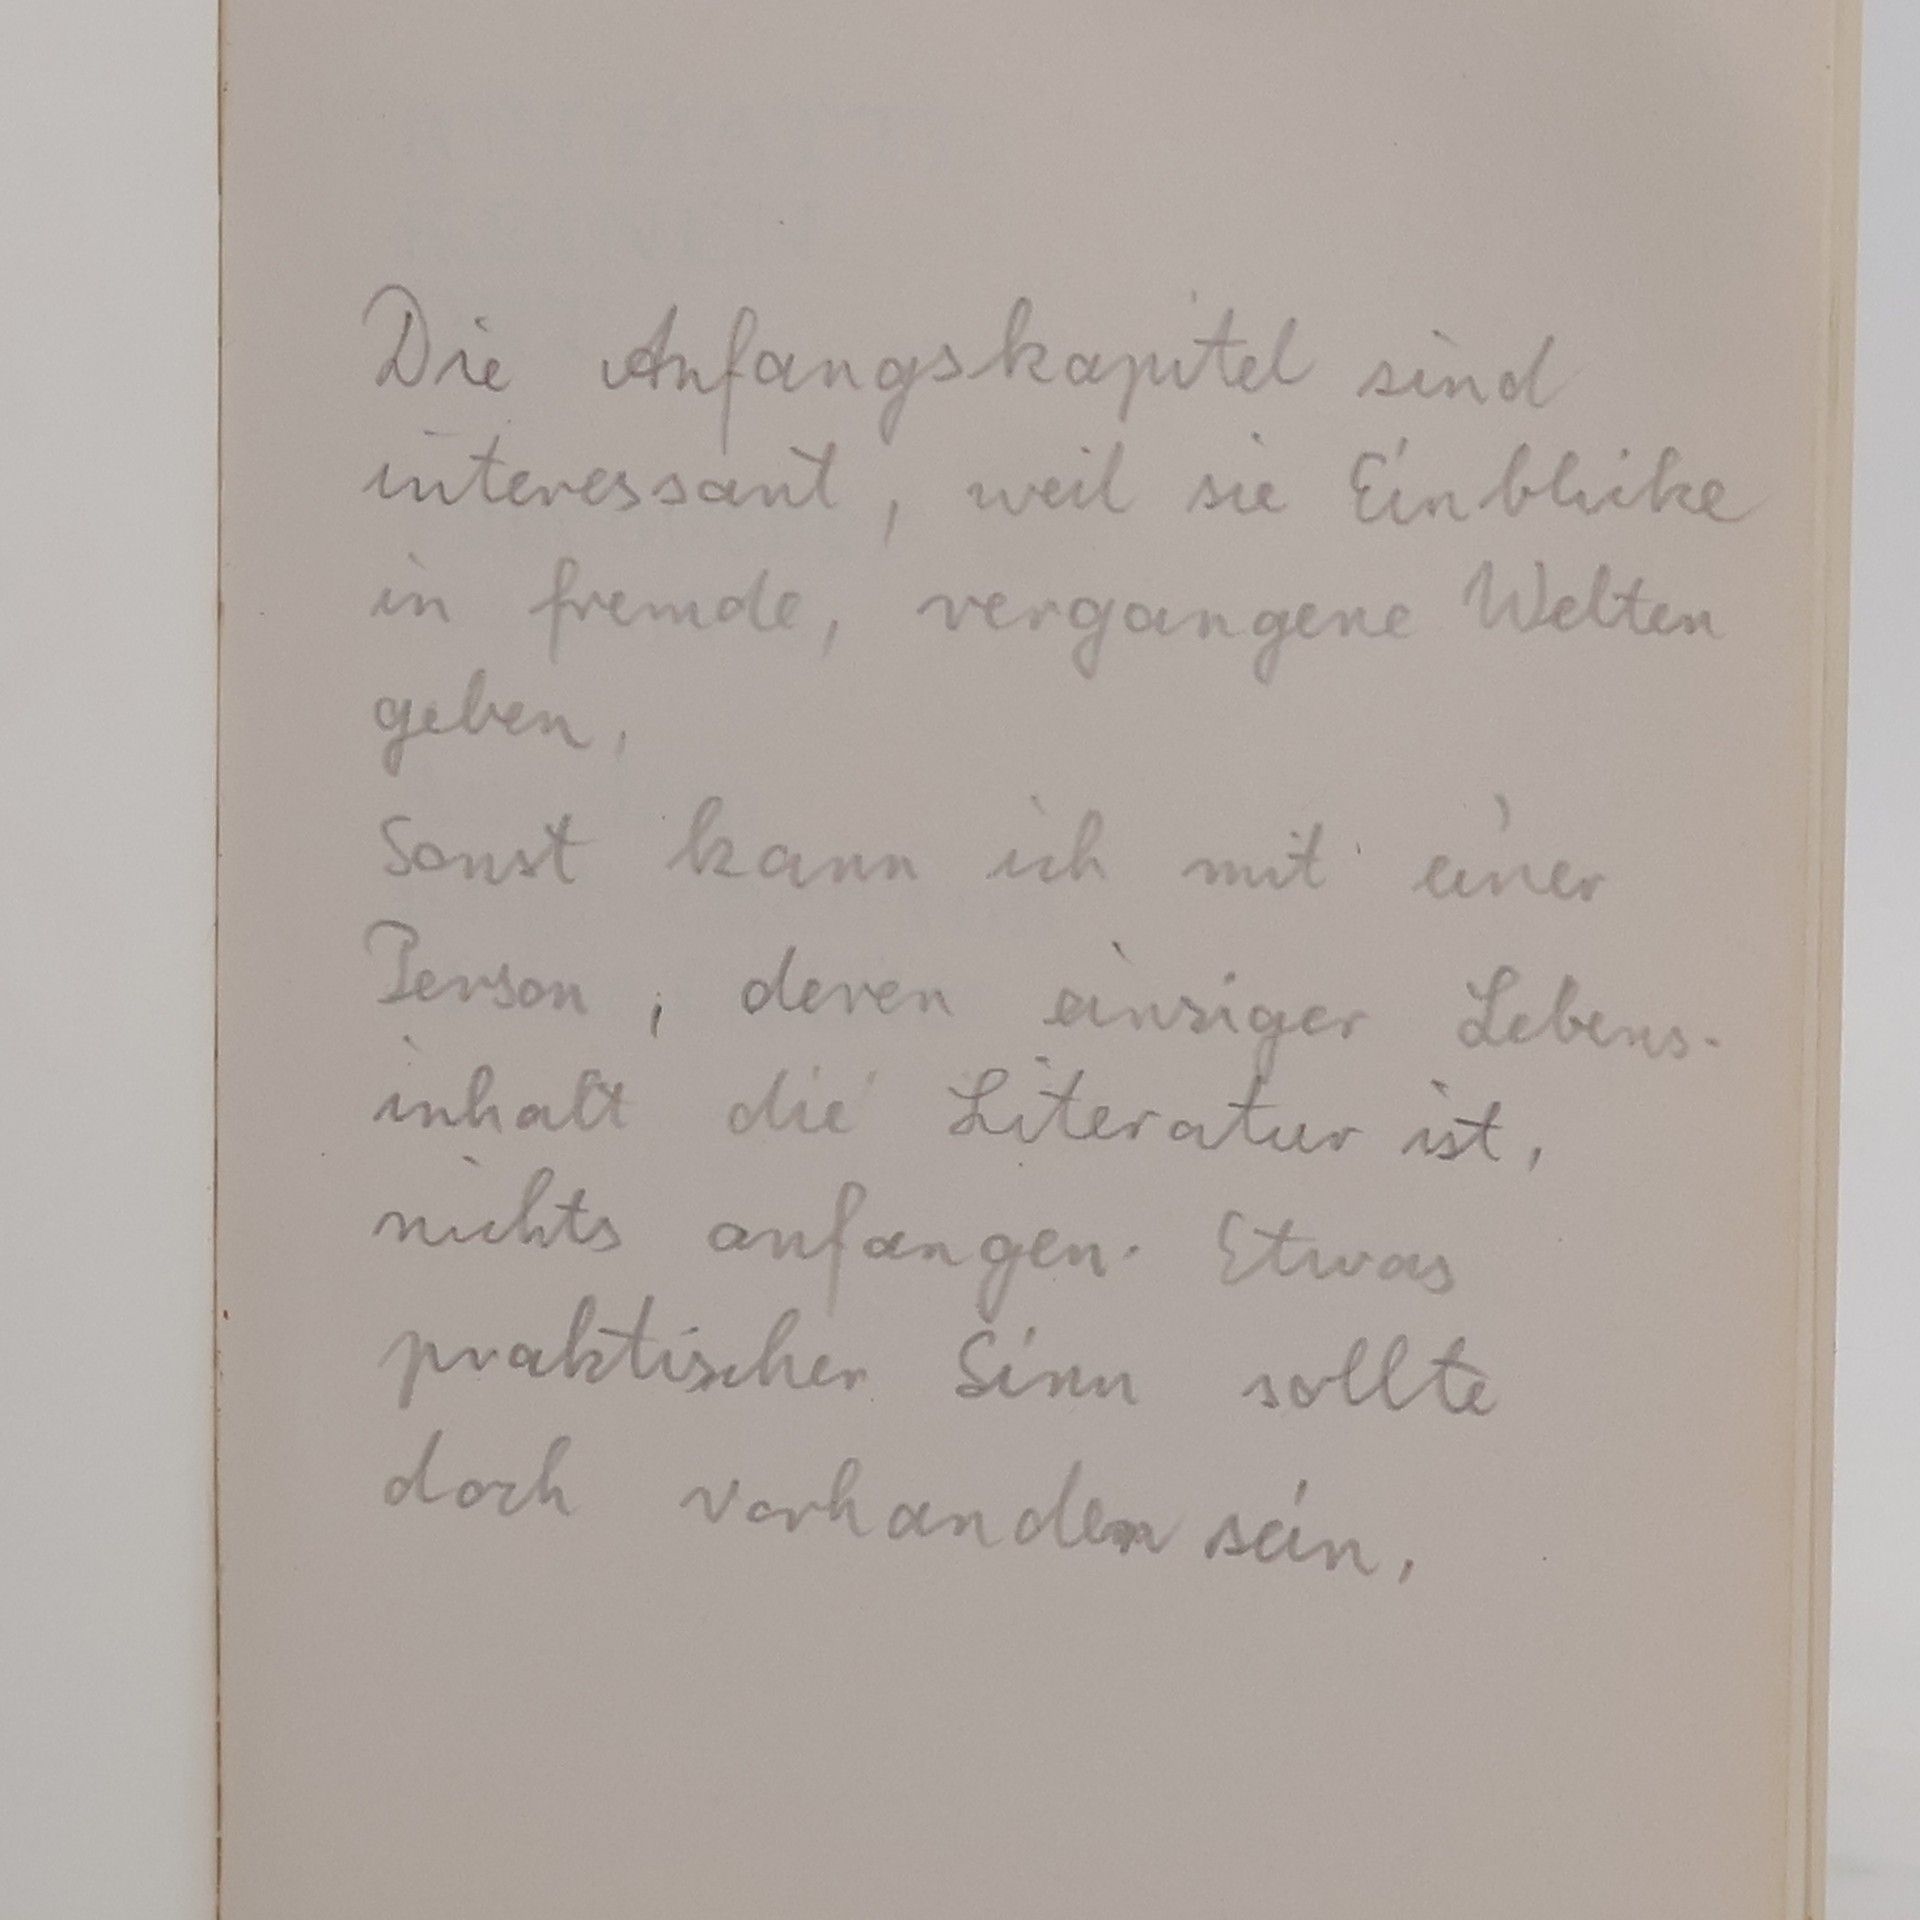 Die Anfangskapitel sind
interessant, weil sie Einblicke
in fremde, vergangene Welten
geben.
Sonst kann ich mit einer
Person, deren einziger Lebens-
inhalt die Literatur ist,
nichts anfangen. Etwas
praktischer Sinn sollte
doch vorhanden sein.